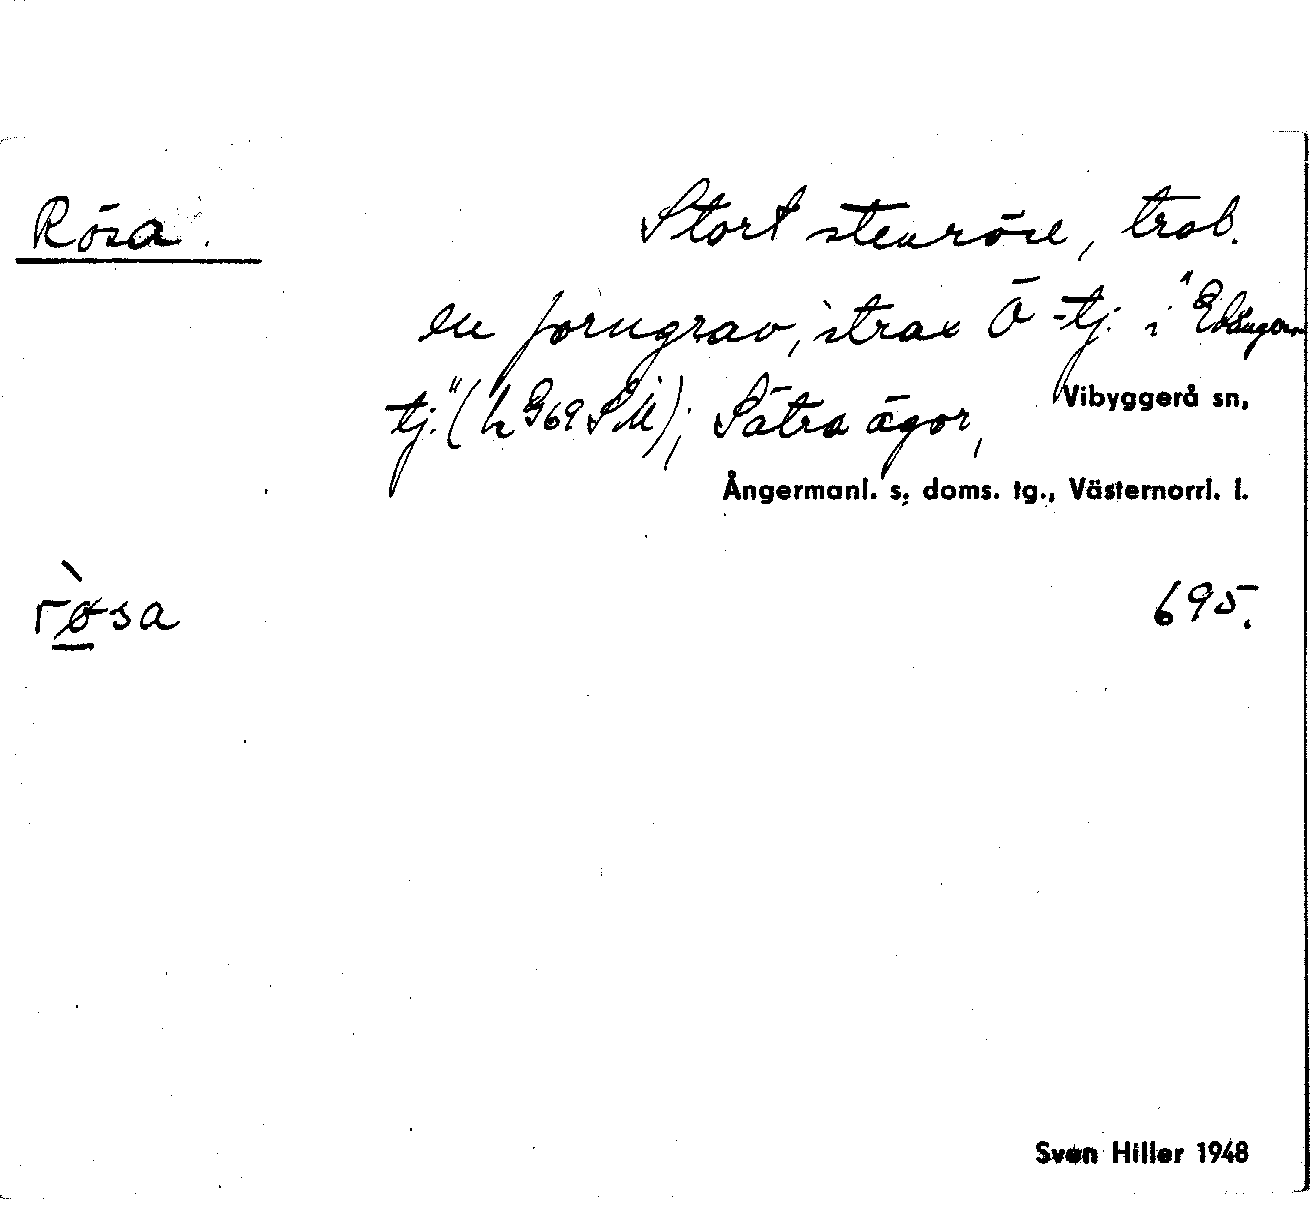 Rösa. Stort stenröse, trol.
en forngrav, strax Ö -tj. i "Edånger-
tj." (h G69 SM); Sätra ägor,
Vibyggerå sn,
Ångermanl. s. doms. tg., Västernorrl. l.
rø̀sa 695.
Sven Hiller 1948